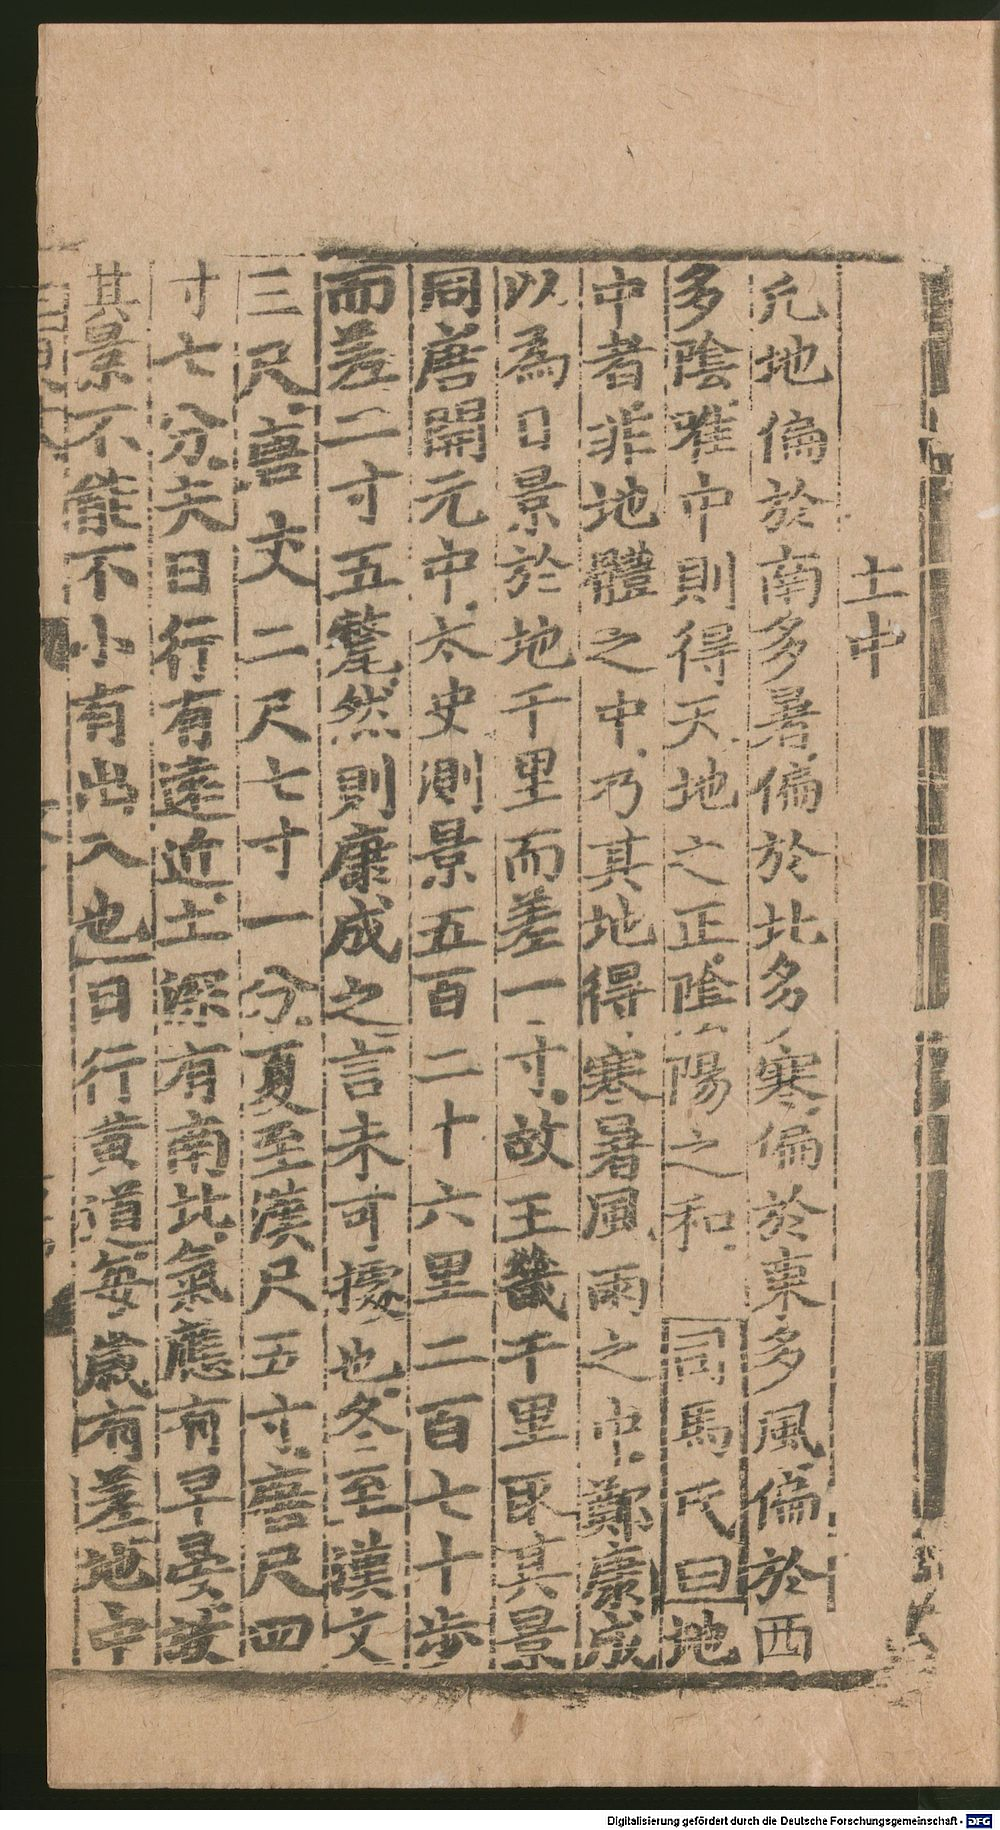 土中
凡地偏於南多暑偏於北多寒偏於東多風偏於西
多陰惟中則得天地之正陰陽之和 司馬氏曰地
中者非地體之中乃其地得寒暑風雨之中鄭康成
以為日景於地千里而差一寸故王畿千里取其景
同唐開元中太史測景五百二十六里二百七十步
而差二寸五氂然則康成之言未可據也冬至漢文
三尺唐丈二尺七寸一分夏至漢尺五寸唐尺四
寸七分夫日行有遠近土深有南北氣應有早晏故
其景不能不小有出入也日行黄道每歲有差地中
Digitalisierung gefördert durch die Deutsche Forschungsgemeinschaft - DFG